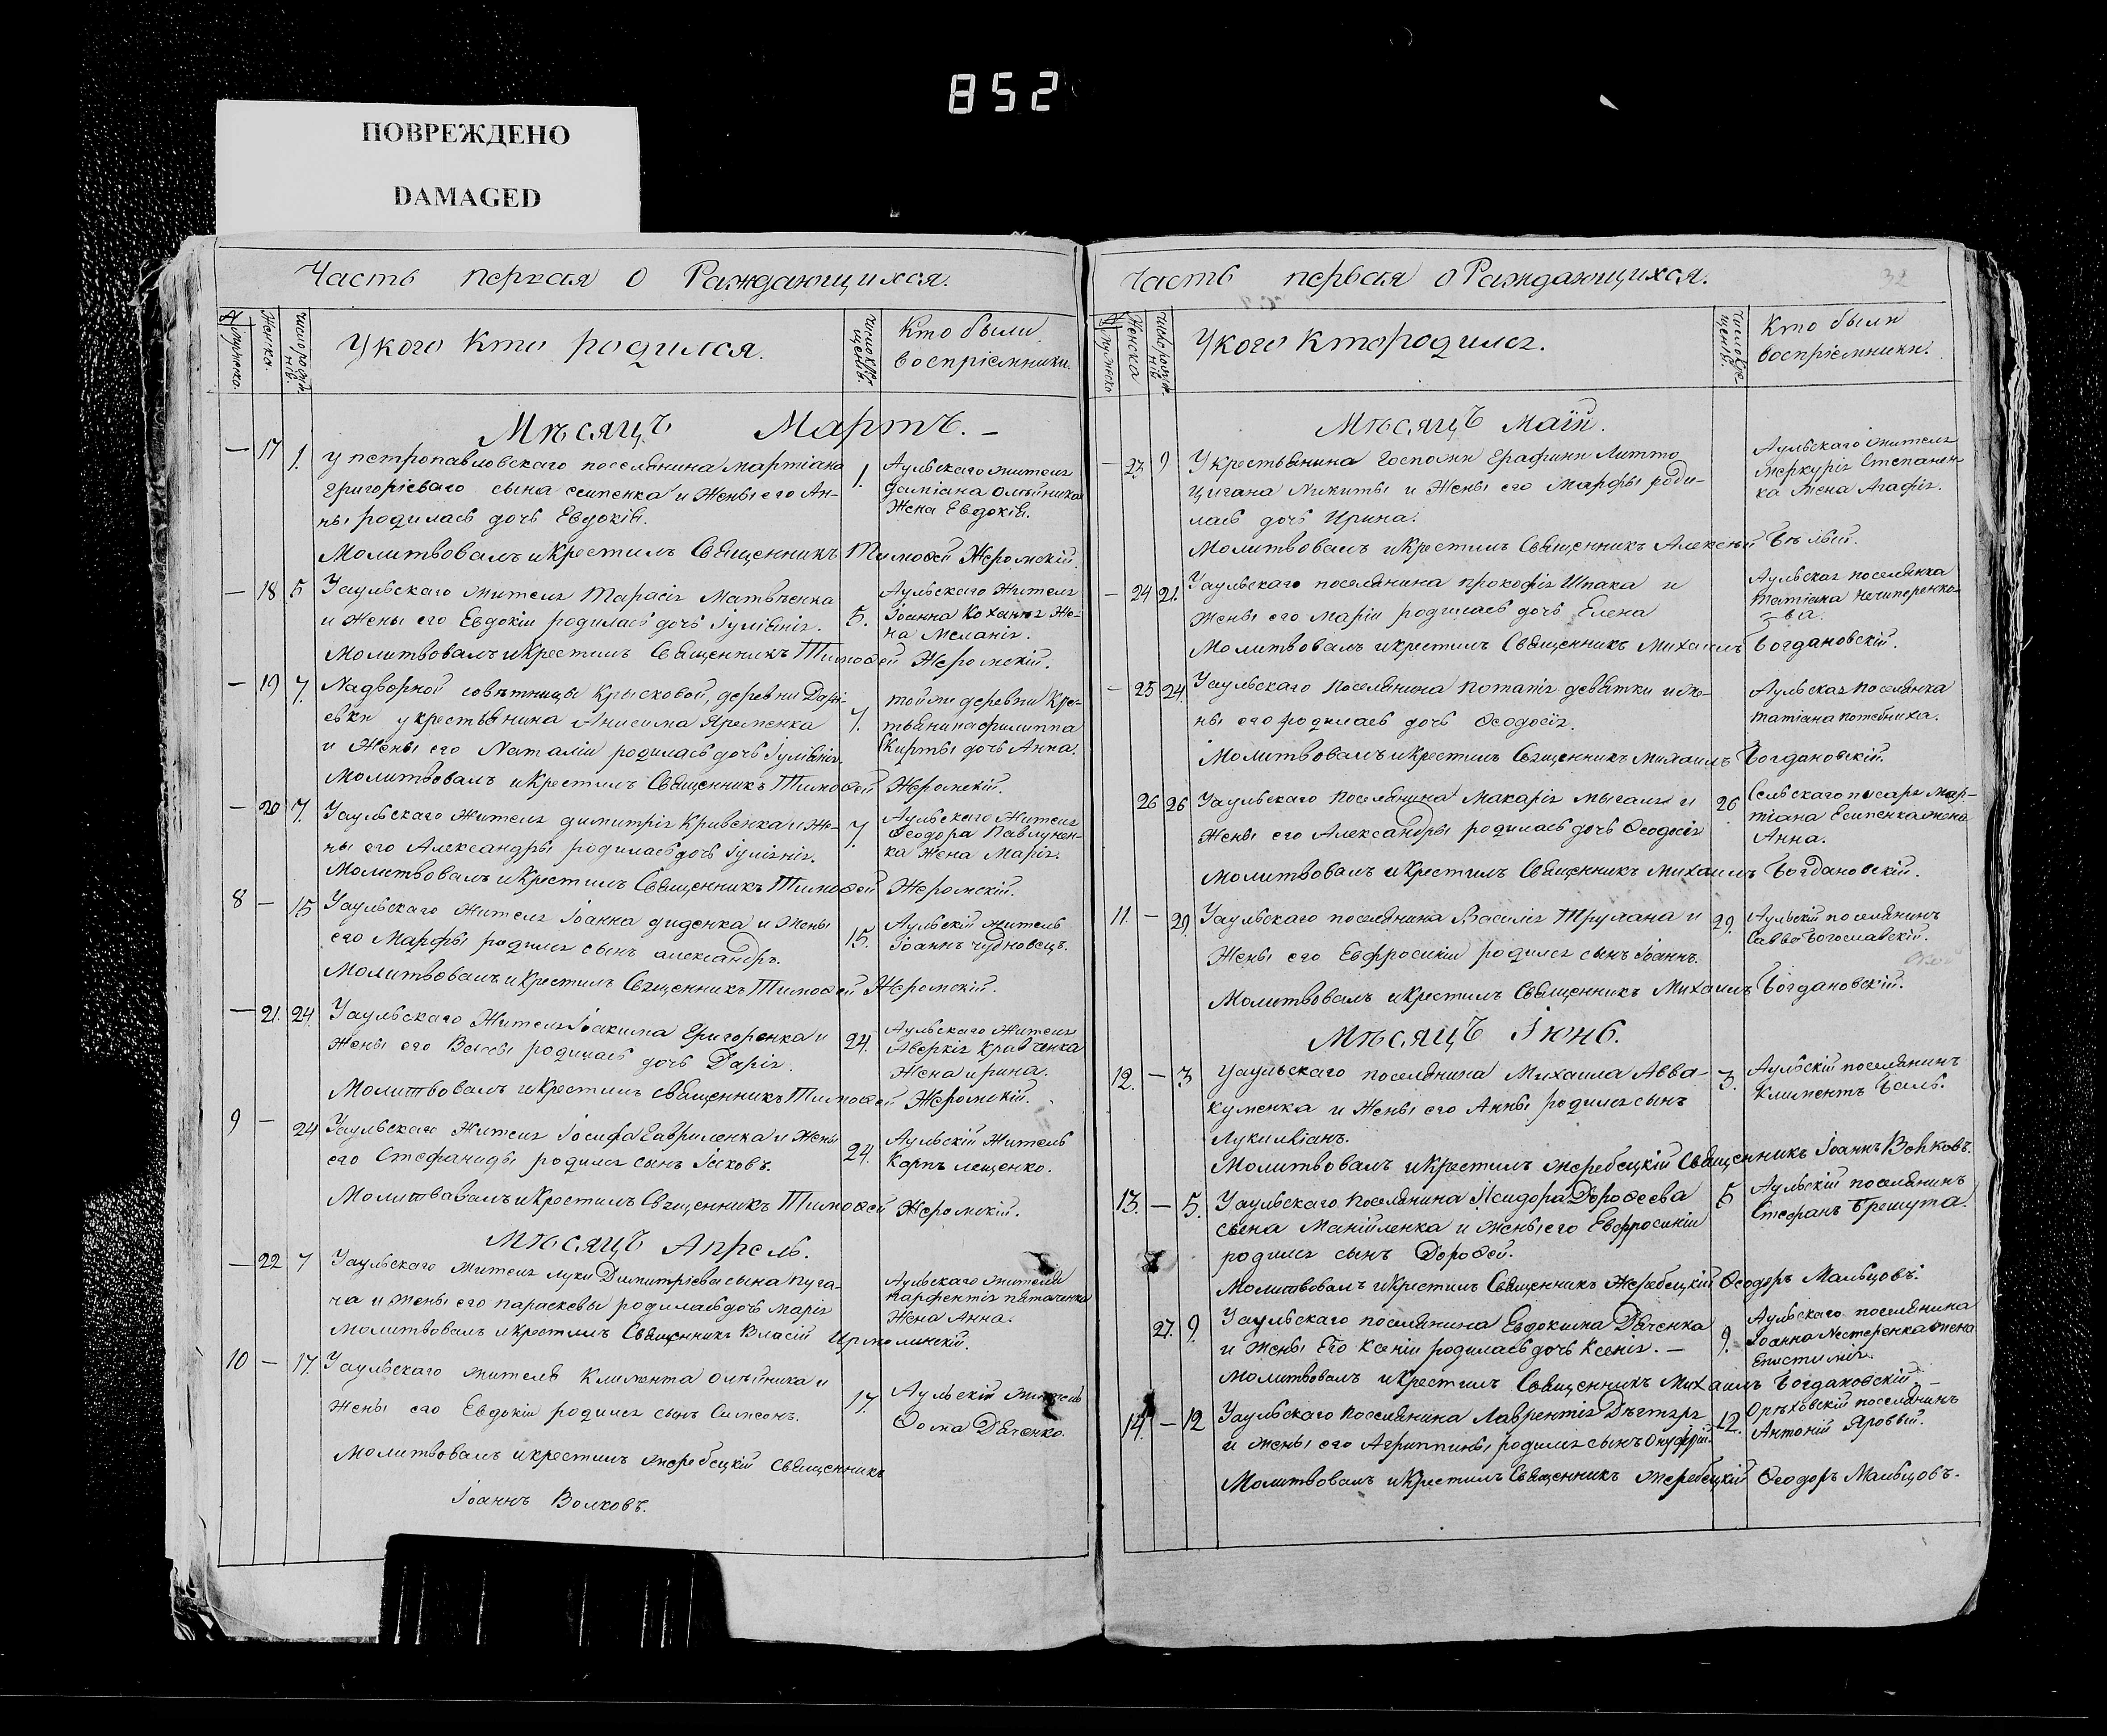 852
ПОВРЕЖДЕНО
DAMAGED
Часть первая о Раждающихся.
Женска.
У кого кто родился.
Кто были
воспріемники.
Мѣсяцъ Мартъ. —
— 17 1. У петропавловскаго поселянина Мартіана 1. Аульскаго жителя
григоріеваго сына есипенка и жены его Ан- даміана олѣйника
ны родилась дочь Евдокія. жена Евдокія.
Молитвовалъ и крестилъ Священникъ Тимоѳей Жеромскій.
— 18 5 У аульскаго жителя Тарасія Матвѣенка Аульскаго жителя
и жены его Евдокіи родилась дочь Іуліянія. 5. Іоанна Коханя же-
на Меланія.
Молитвовалъ и крестилъ Священникъ Тимоѳей Жеромскій.
— 19 7. Надворной совѣтницы Крысковой, деревни Дарі- тойже деревни Кре-
евки у крестьянина Анисима Яременка 7. тьянина филиппа
и жены его Наталіи родилась дочь Іуліянія. Скирты дочь Анна.
Молитвовалъ и крестилъ Священникъ Тимоѳей Жеромскій.
— 20 7. У аульскаго жителя димитрія Кривенка и же- 7. Аульскаго жителя
Ѳеодора Павлунен-
ны его Александры родилась дочь Іуліянія. ка жена Марія.
Молитвовалъ и крестилъ Священникъ Тимоѳей Жеромскій.
8 — 15 У аульскаго жителя Іоанна диденка и жены 15. Аульскій житель
его Марфы родился сынъ александръ. Іоаннъ чудновецъ.
Молитвовалъ и крестилъ Священникъ Тимоѳей Жеромскій.
— 21. 24. У аульскаго жителя Іоакима Григоренка и 24. Аульскаго жителя
жены его Вассы родилась дочь Дарія. Аверкія Кравченка
жена ирина.
Молитвовалъ и крестилъ священникъ Тимоѳей Жеромскій.
9 — 24 У аульскаго жителя Іосифа Гавриленка и жены 24. Аульскій житель
его Стефаниды родился сынъ Іаковъ. Карпъ лещенко.
Молитвавалъ и крестилъ Священникъ Тимоѳей Жеромскій.
Мѣсяцъ Апрель.
— 22 7 У аульскаго жителя луки Димитріева сына пуга- Аульскаго жителя
ча и жены его параскевы родилась дочь марія парфентія
жена Анна.
Молитвовалъ и крестилъ Священникъ Власій Ирмолинскій.
10 — 17. У аульскаго жителя Климента олѣйника и 17. Аульскій житель
жены его Евдокіи родился сынъ Симеонъ. Ѳома Дяченко.
Молитвовалъ и крестилъ жеребецкій Священникъ
Іоаннъ Волковъ.
Часть первая о Раждающихся.
32
Женска
У кого кто родился.
Кто были
воспріемники.
Мѣсяцъ маій.
— 23 9 У крестьянина Госпожи Ерафини Литто Аульскаго жителя
цигана Никиты и жены его Марфы роди- Меркурія Степанен-
лась дочь Ирина. ка жена Агафія.
Молитвовалъ и крестилъ Священникъ Алексѣй Бѣлый.
— 24 21. У аульскаго поселянина прокофія Шпака и Аульская поселянка
жены его Маріи родилась дочь Елена татіана нечипоренко-
ва.
Молитвовалъ и крестилъ Священникъ Михаилъ Богдановскій.
— 25 24. У аульскаго поселянина потапія девятки и же- Аульская поселянка
ны его родилась дочь Ѳеодосія. татіана потебниха.
Молитвовалъ и крестилъ Священникъ Михаилъ Богдановскій.
26 26 У аульскаго поселянина Макарія мигаля и 26 Сельскаго писаря Мар-
жены его Александры родилась дочь Ѳеодосія тіана Есипенка жена
Анна.
Молитвовалъ и крестилъ Священникъ Михаилъ Богдановскій.
11. — 29. У аульскаго поселянина Василія Трумана и 29. Аульскій поселянинъ
жены его Евфросиніи родился сынъ Іоаннъ. Савва Богославскій.
Молитвовалъ и крестилъ Священникъ Михаилъ Богдановскій.
Мѣсяцъ Іюнь.
12. — 3 У аульскаго поселянина Михаила Авва- 3. Аульскій поселянинъ
куменка и жены его Анны родился сынъ Климентъ Бѣль.
Лукилліанъ.
Молитвовалъ и крестилъ жеребецкій Священникъ Іоаннъ Волковъ.
13. — 5. У аульскаго поселянина Исидора Дороѳеева 5 Аульскій поселянинъ
сына Манійленка и жены его Евфросиніи Стефанъ Брешута.
родился сынъ Дороѳей.
Молитвовалъ и крестилъ Священникъ Жеребецкій Ѳеодоръ Мальцовъ.
27. 9. У аульскаго поселянина Евдокима Дяченка 9. Аульскаго поселянина
и жены его Ксеніи родилась дочь Ксенія. — Іоанна Нестеренка жена
Епистимія.
Молитвовалъ и крестилъ Священникъ Михаилъ Богдановскій. —
14. — 12 У аульскаго поселянина Лаврентія Дѣгтяря 12. Орѣховскій поселянинъ
и жены его Агриппины родился сынъ Онуфрій. Антоній Яровый.
Молитвовалъ и крестилъ Священникъ жеребецкій Ѳеодоръ Мальцовъ.